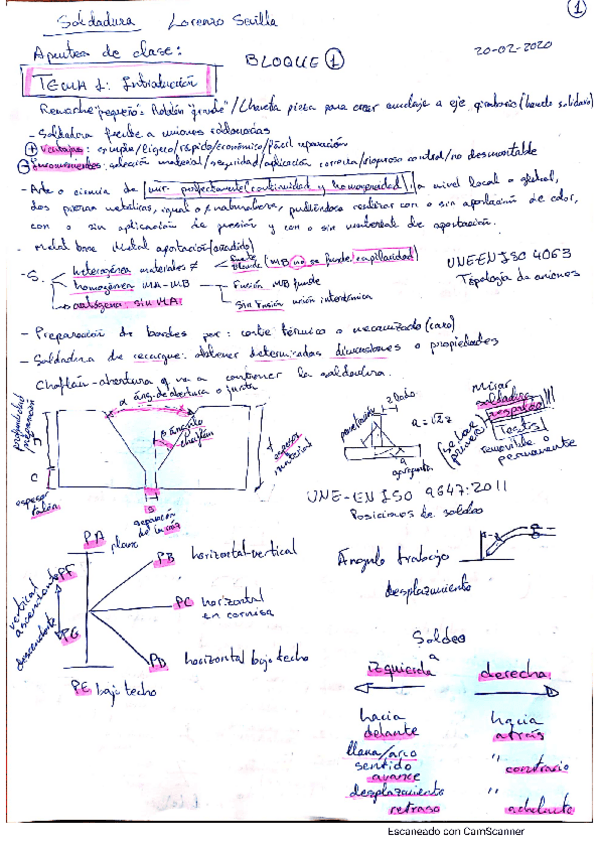 1
Soldadura Lorenzo Sevilla
Apuntes de clase: BLOQUE 1 20-02-2020
TEMA 1: Introducción
Remache "pequeño" Roblón "grande" / Chaveta pieza para crear anclaje a eje giratorio (hacerlo solidario)
- Soldadura frente a uniones
+ Ventajas: /ligero/rápido/económico/fácil reparación
- Inconvenientes: selección material/seguridad/aplicación correcta/riguroso control/no desmontable
- Arte o ciencia de unir perfectamente (continuidad y homogeneidad), a nivel local o global,
dos piezas metálicas, igual o ≠ naturaleza, pudiéndose realizar con o sin aportación de calor,
con o sin aplicación de presión y con o sin material de aportación.
- Metal base Metal aportación (añadido)
- S. heterogénea materiales ≠ fuerte blanda (MB no se funde) capilaridad UNE-EN ISO 4063
homogénea MA-MB Fusión MB funde Tipología de uniones
autógena: sin MA Sin fusión unión
- Preparación de bordes por: corte térmico o mecanizado (caro)
- Soldadura de recargue: obtener determinadas dimensiones o propiedades
Chaflán - abertura q va a contener la soldadura.
α áng. de abertura o junta
profundidad preparación
β ángulo chaflán
espesor material
t
c
espesor talón
s
separación de la raíz
penetración
z lado
a = √2 z
a
garganta
Mirar soldadura respaldo
Tests
removible o permanente
UNE-EN ISO 9647:2011
Posiciones de soldeo
PA plana
PB horizontal-vertical
PC horizontal en cornisa
PD horizontal bajo techo
PE bajo techo
vertical ascendente PF
descendente PG
Ángulo trabajo
desplazamiento
Soldeo
a
izquierda derecha
hacia delante hacia atrás
llama/arco sentido avance " contrario
desplazamiento retraso " adelanto
Escaneado con CamScanner